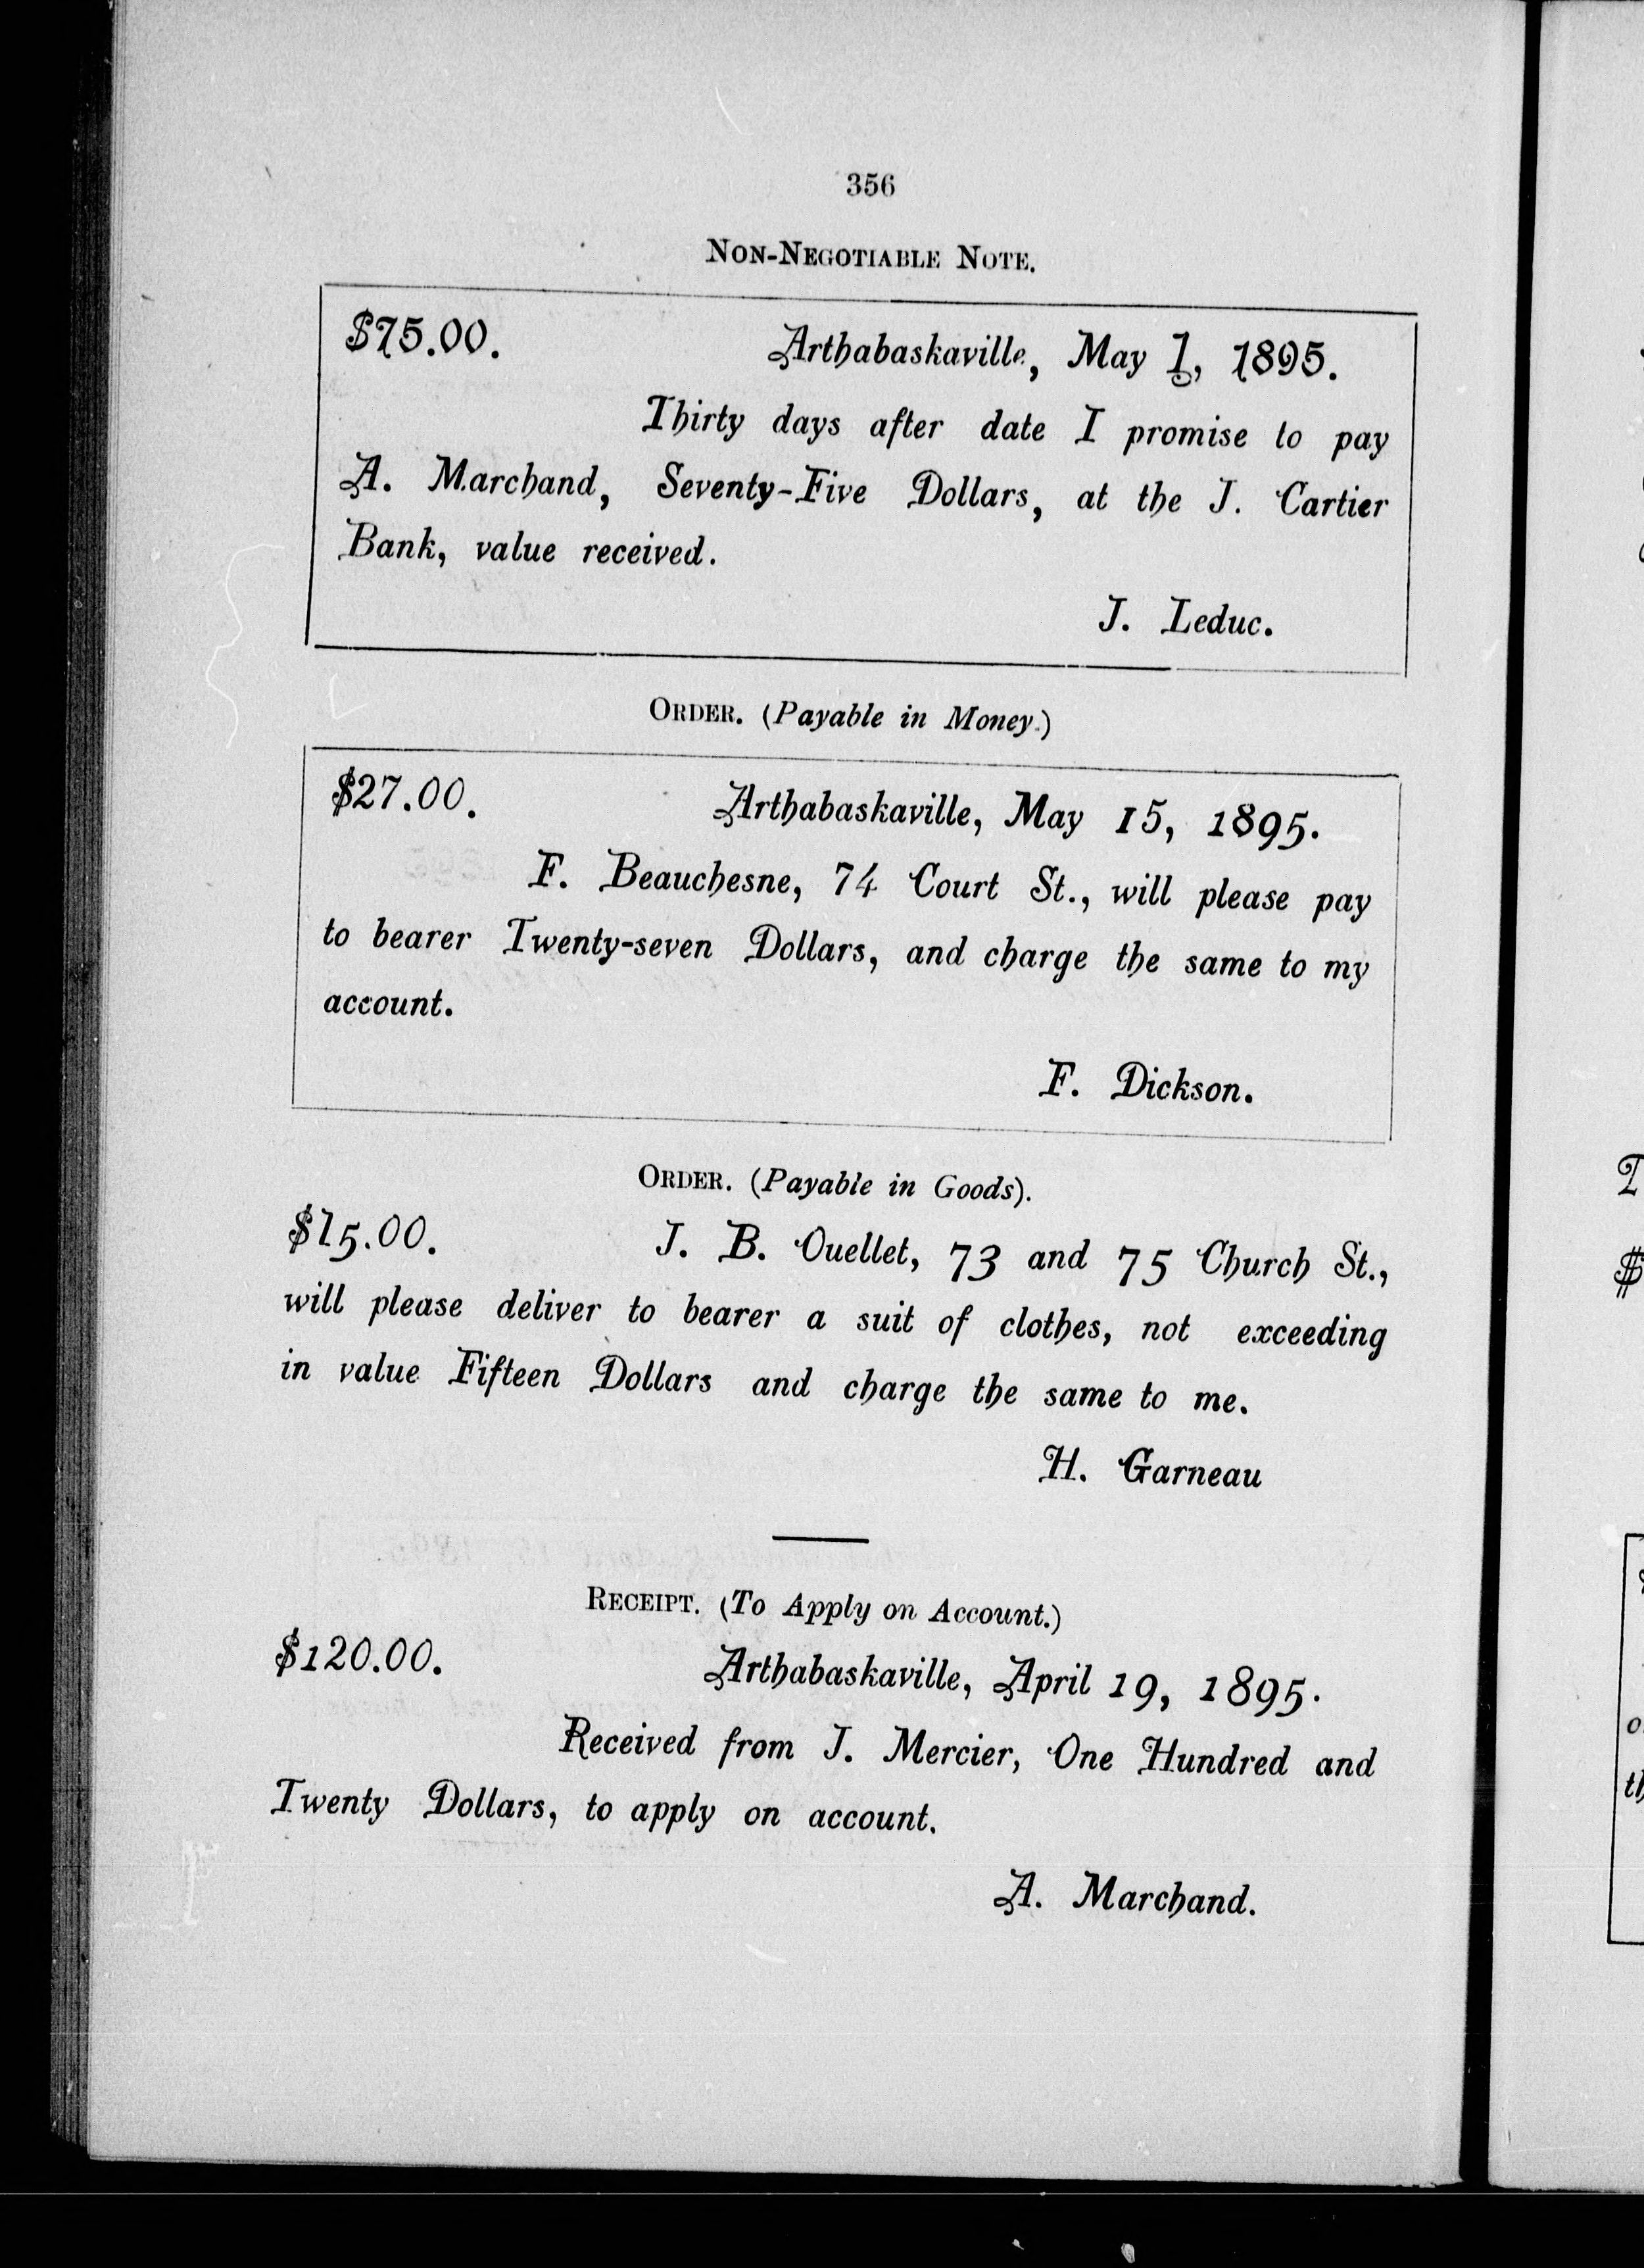 356
NON-NEGOTIABLE NOTE.
$75.00. Arthabaskaville, May 1, 1895.
Thirty days after date I promise to pay
A. Marchand, Seventy-Five Dollars, at the J. Cartier
Bank, value received.
J. Leduc.
ORDER. (Payable in Money.)
$27.00. Arthabaskaville, May 15, 1895.
F. Beauchesne, 74 Court St., will please pay
to bearer Twenty-seven Dollars, and charge the same to my
account.
F. Dickson.
ORDER. (Payable in Goods).
$15.00. J. B. Ouellet, 73 and 75 Church St.,
will please deliver to bearer a suit of clothes, not exceeding
in value Fifteen Dollars and charge the same to me.
H. Garneau
RECEIPT. (To Apply on Account.)
$120.00. Arthabaskaville, April 19, 1895.
Received from J. Mercier, One Hundred and
Twenty Dollars, to apply on account.
A. Marchand.